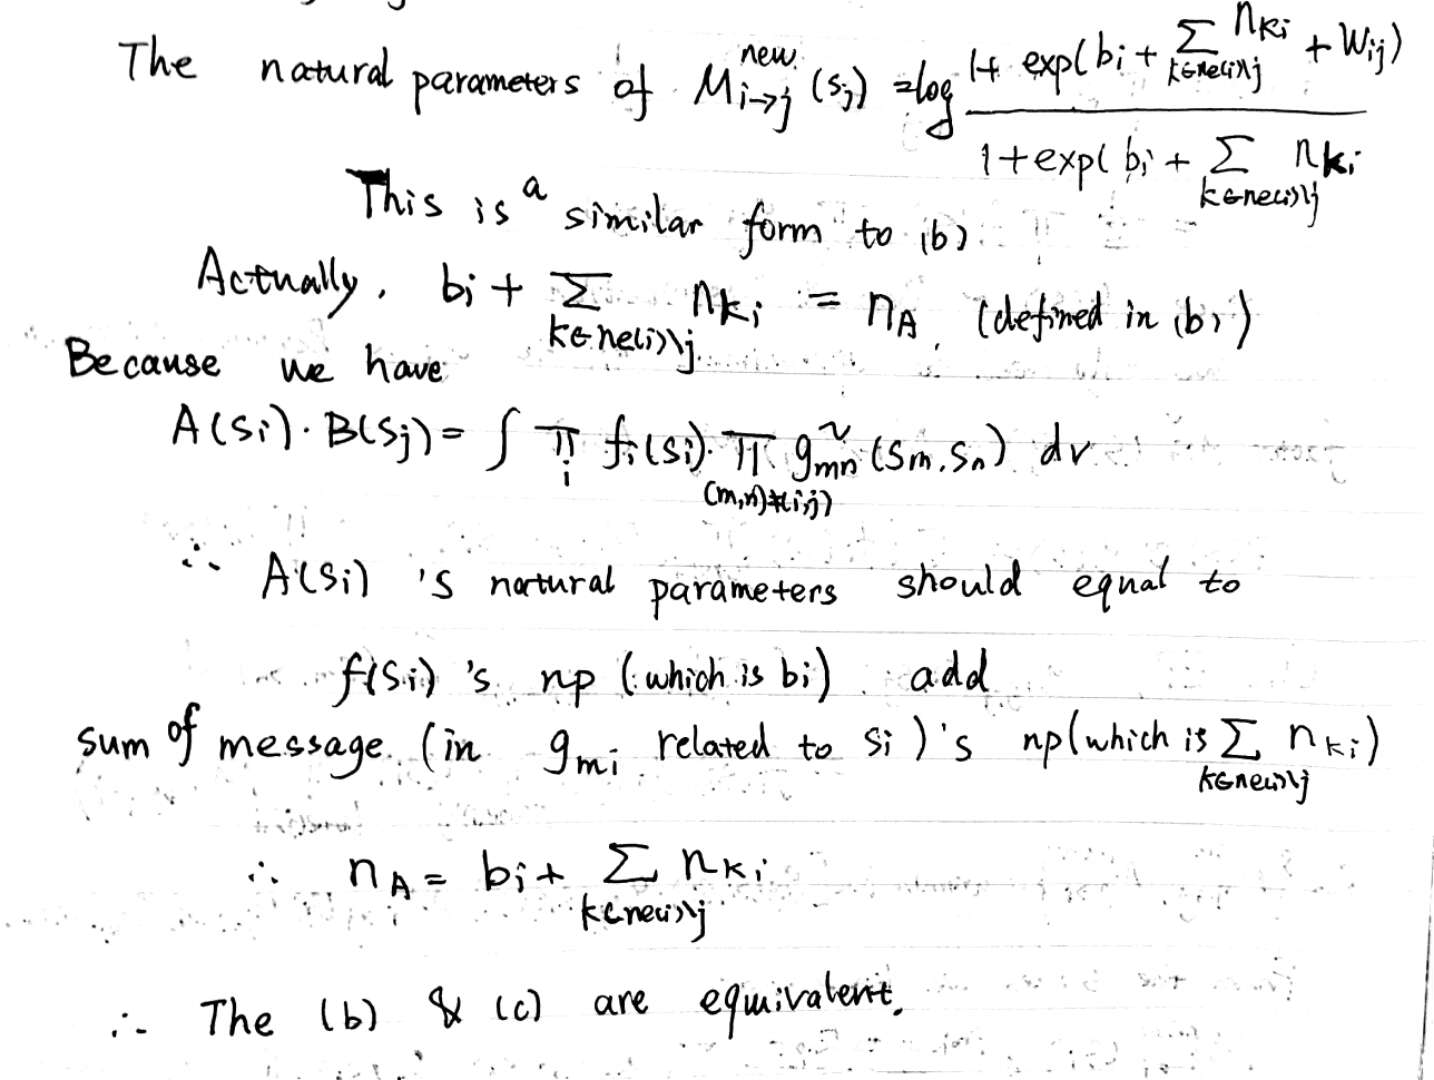 The natural parameters of M_{i→j}^{new}(s_j) = log \frac{1+ exp(b_i + \sum_{k∈ne(i)\backslash j} n_{ki} + W_{ij})}{1+exp( b_i + \sum_{k∈ne(i)\backslash j} n_{ki}}
This is a similar form to (b).
Actually, b_i + \sum_{k∈ne(i)\backslash j} n_{ki} = n_A. (defined in (b))
Because we have
A(s_i)·B(s_j) = ∫ \prod_i f_i(s_i)· \prod_{(m,n)≠(i,j)} \tilde{g}_{mn}(s_m,s_n) dv
∴ A(s_i) 's natural parameters should equal to
f(s_i) 's np (which is b_i) add
sum of message (in g_{mi} related to s_i)'s np(which is \sum_{k∈ne(i)\backslash j} n_{ki})
∴ n_A = b_i + \sum_{k∈ne(i)\backslash j} n_{ki}
∴ The (b) & (c) are equivalent.